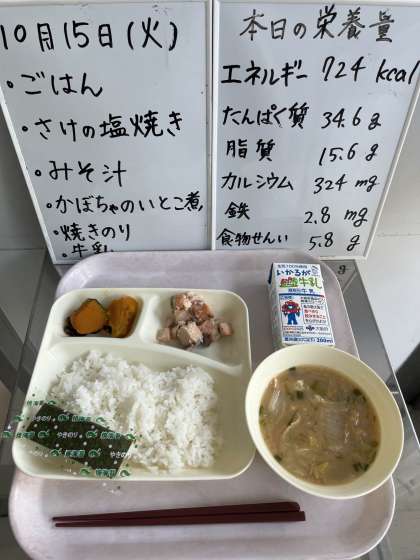 10月15日(火)
・ごはん
・さけの塩焼き
・みそ汁
・かぼちゃのいとこ煮
・焼きのり
・牛乳
本日の栄養量
エネルギー 724 kcal
たんぱく質 34.6 g
脂質 15.6 g
カルシウム 324 mg
鉄 2.8 mg
食物せんい 5.8 g
g
いかるが
牛乳
200ml
やきのり
やきのり